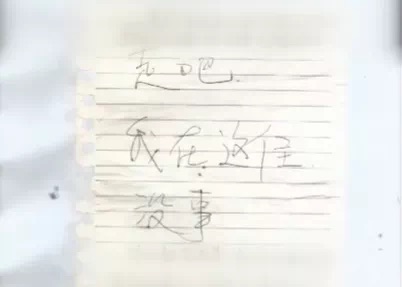 走吧.
我在这住.
没事